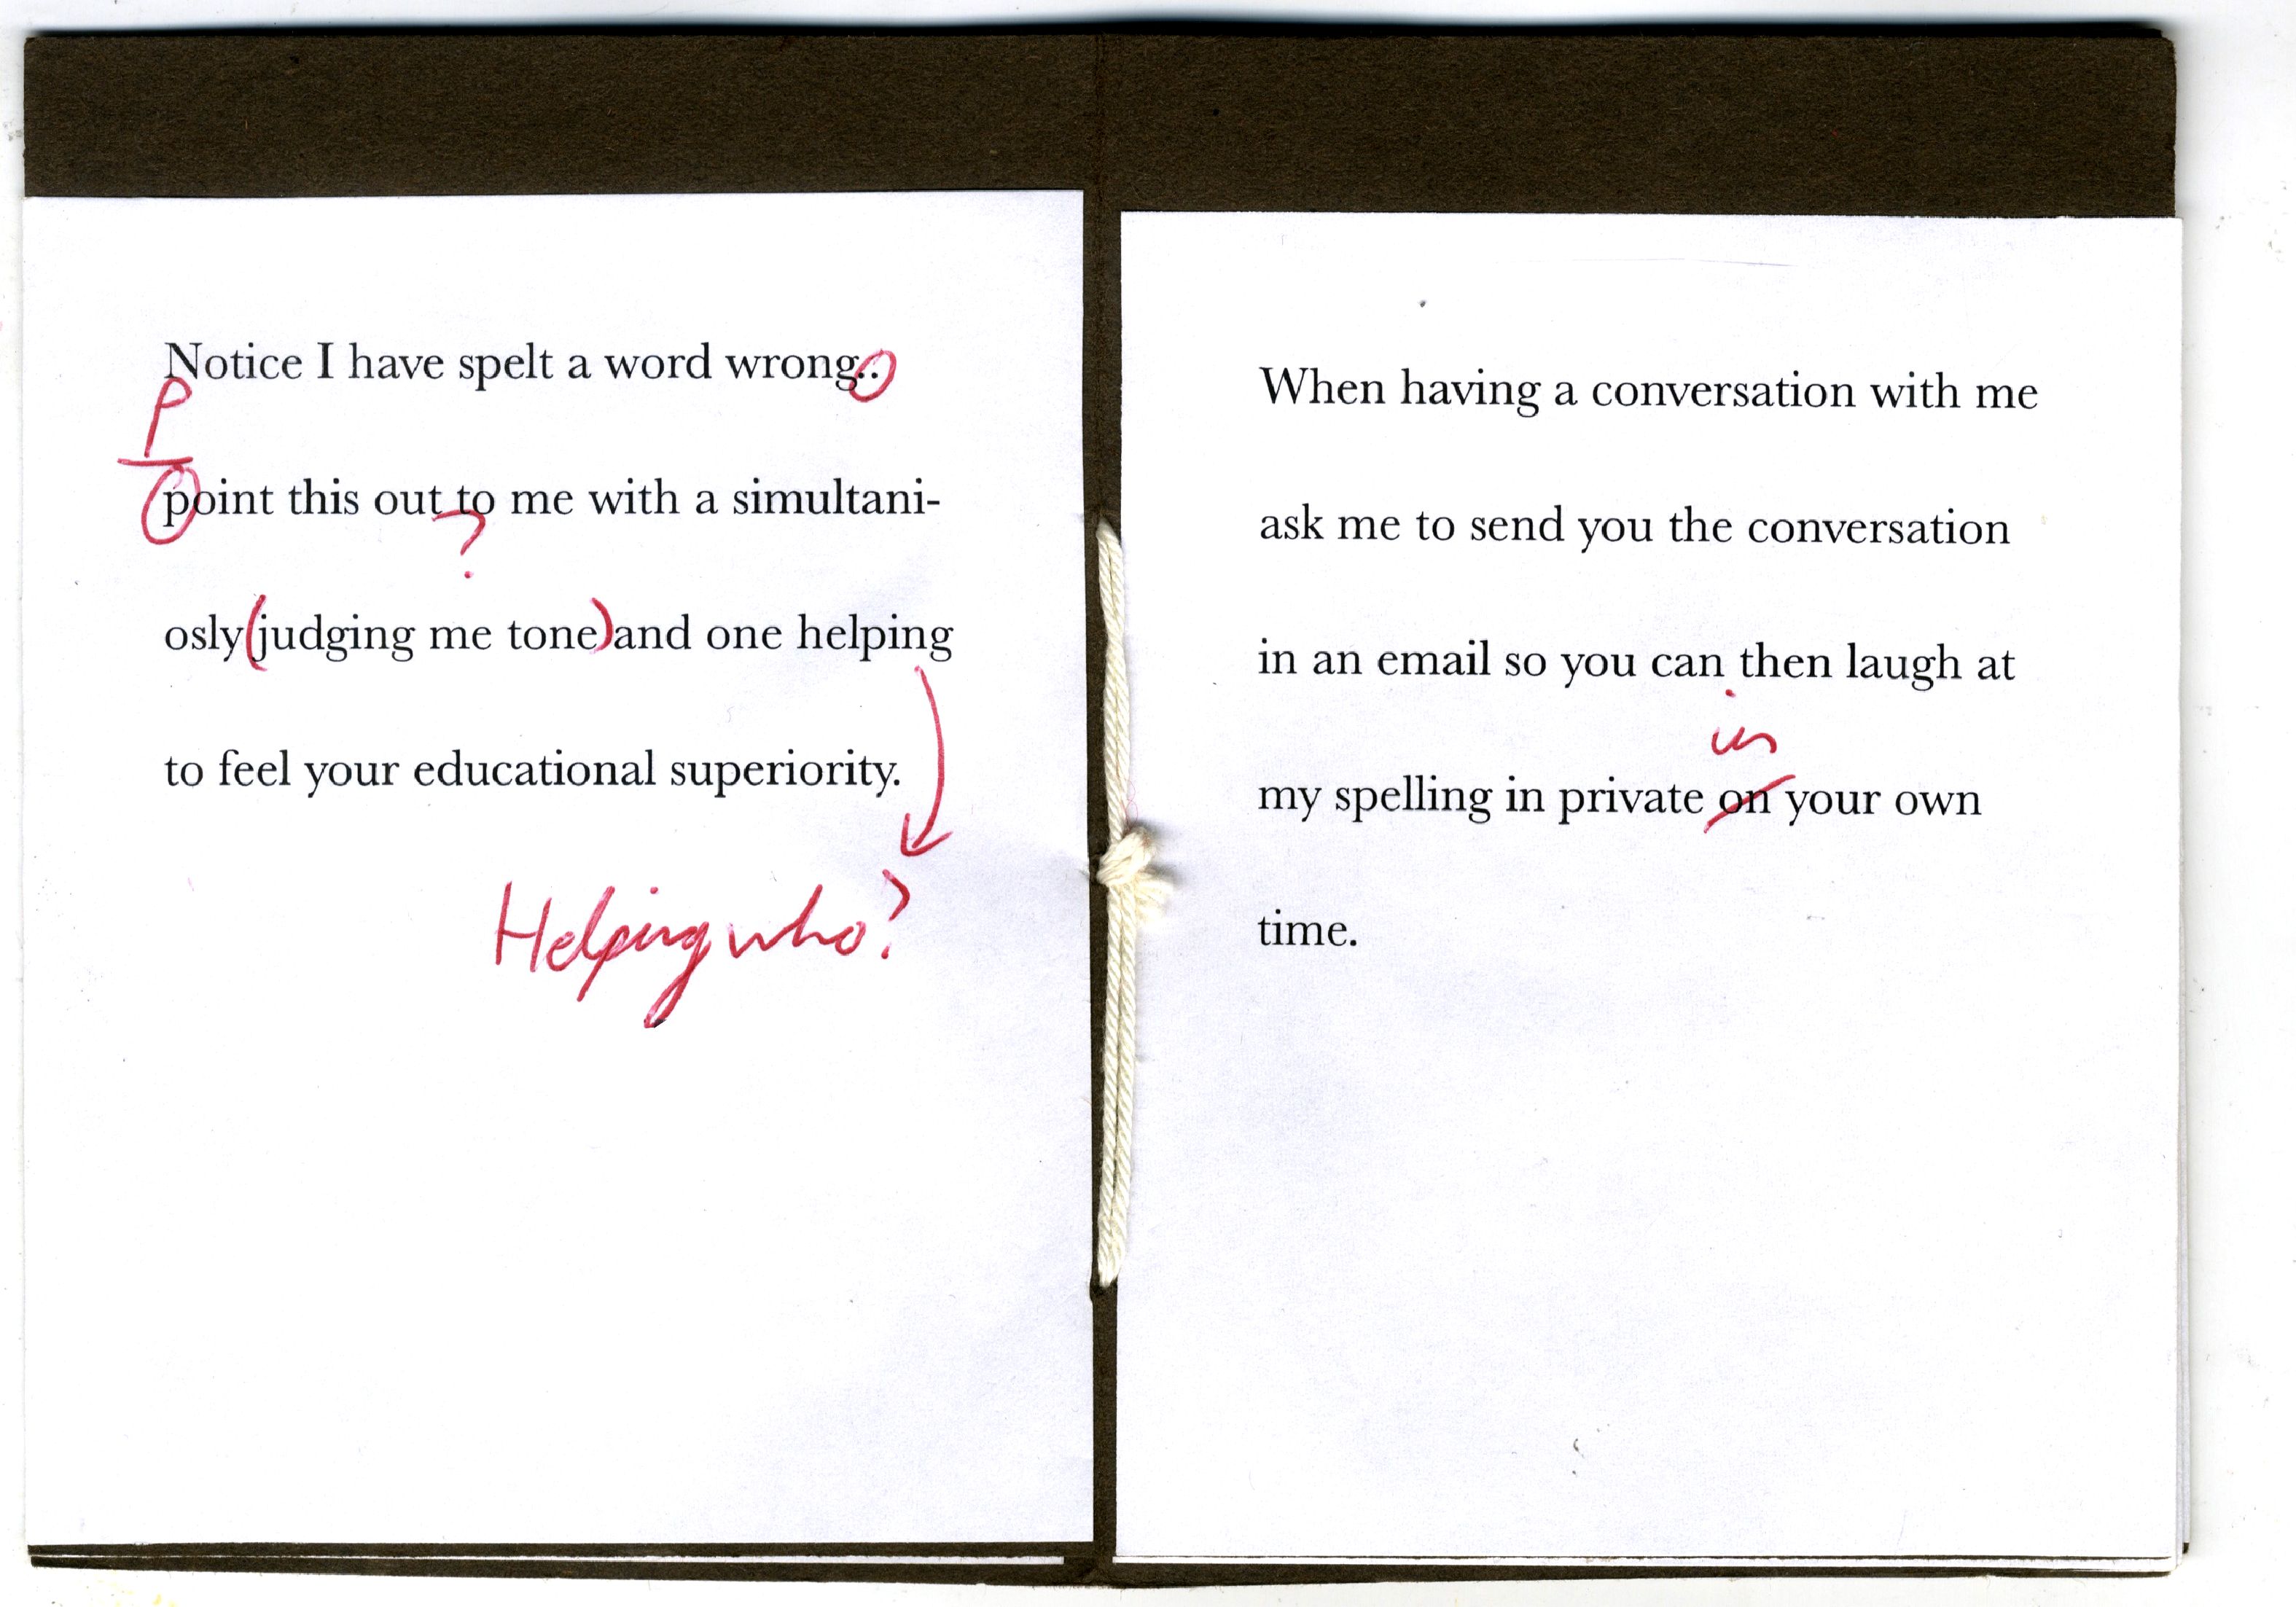 Notice I have spelt a word wrong..
P
point this out to me with a simultani-
?
osly(judging me tone)and one helping
to feel your educational superiority.
Helping who?
When having a conversation with me
ask me to send you the conversation
in an email so you can then laugh at
in
my spelling in private on your own
time.